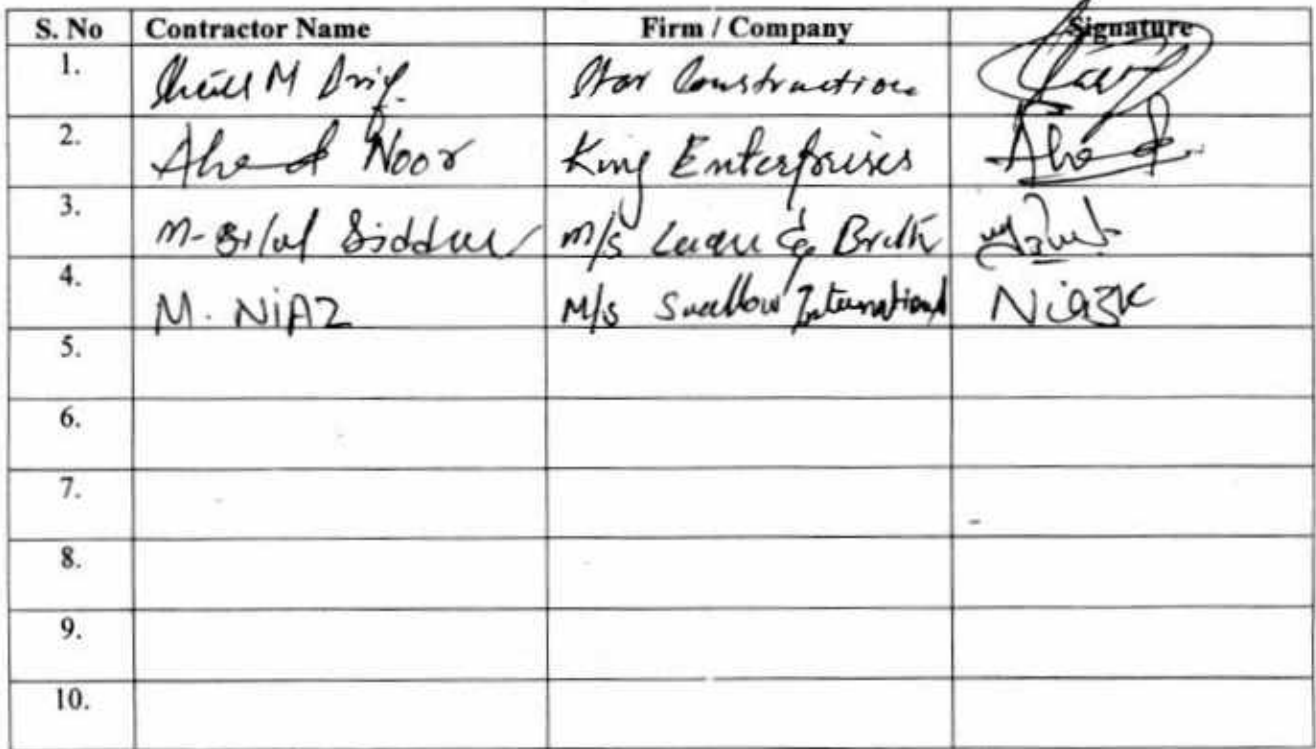 S. No Contractor Name Firm / Company Signature
1. M Star Construction
2. Ahmed Noor King Enterprises Ahmed
3. M-Bilal M/s &
4. M. NiAZ M/s Swallow International Niazk
5.
6.
7.
8.
9.
10.